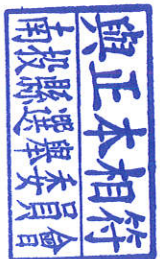 與正本相符
南投縣選舉委員會